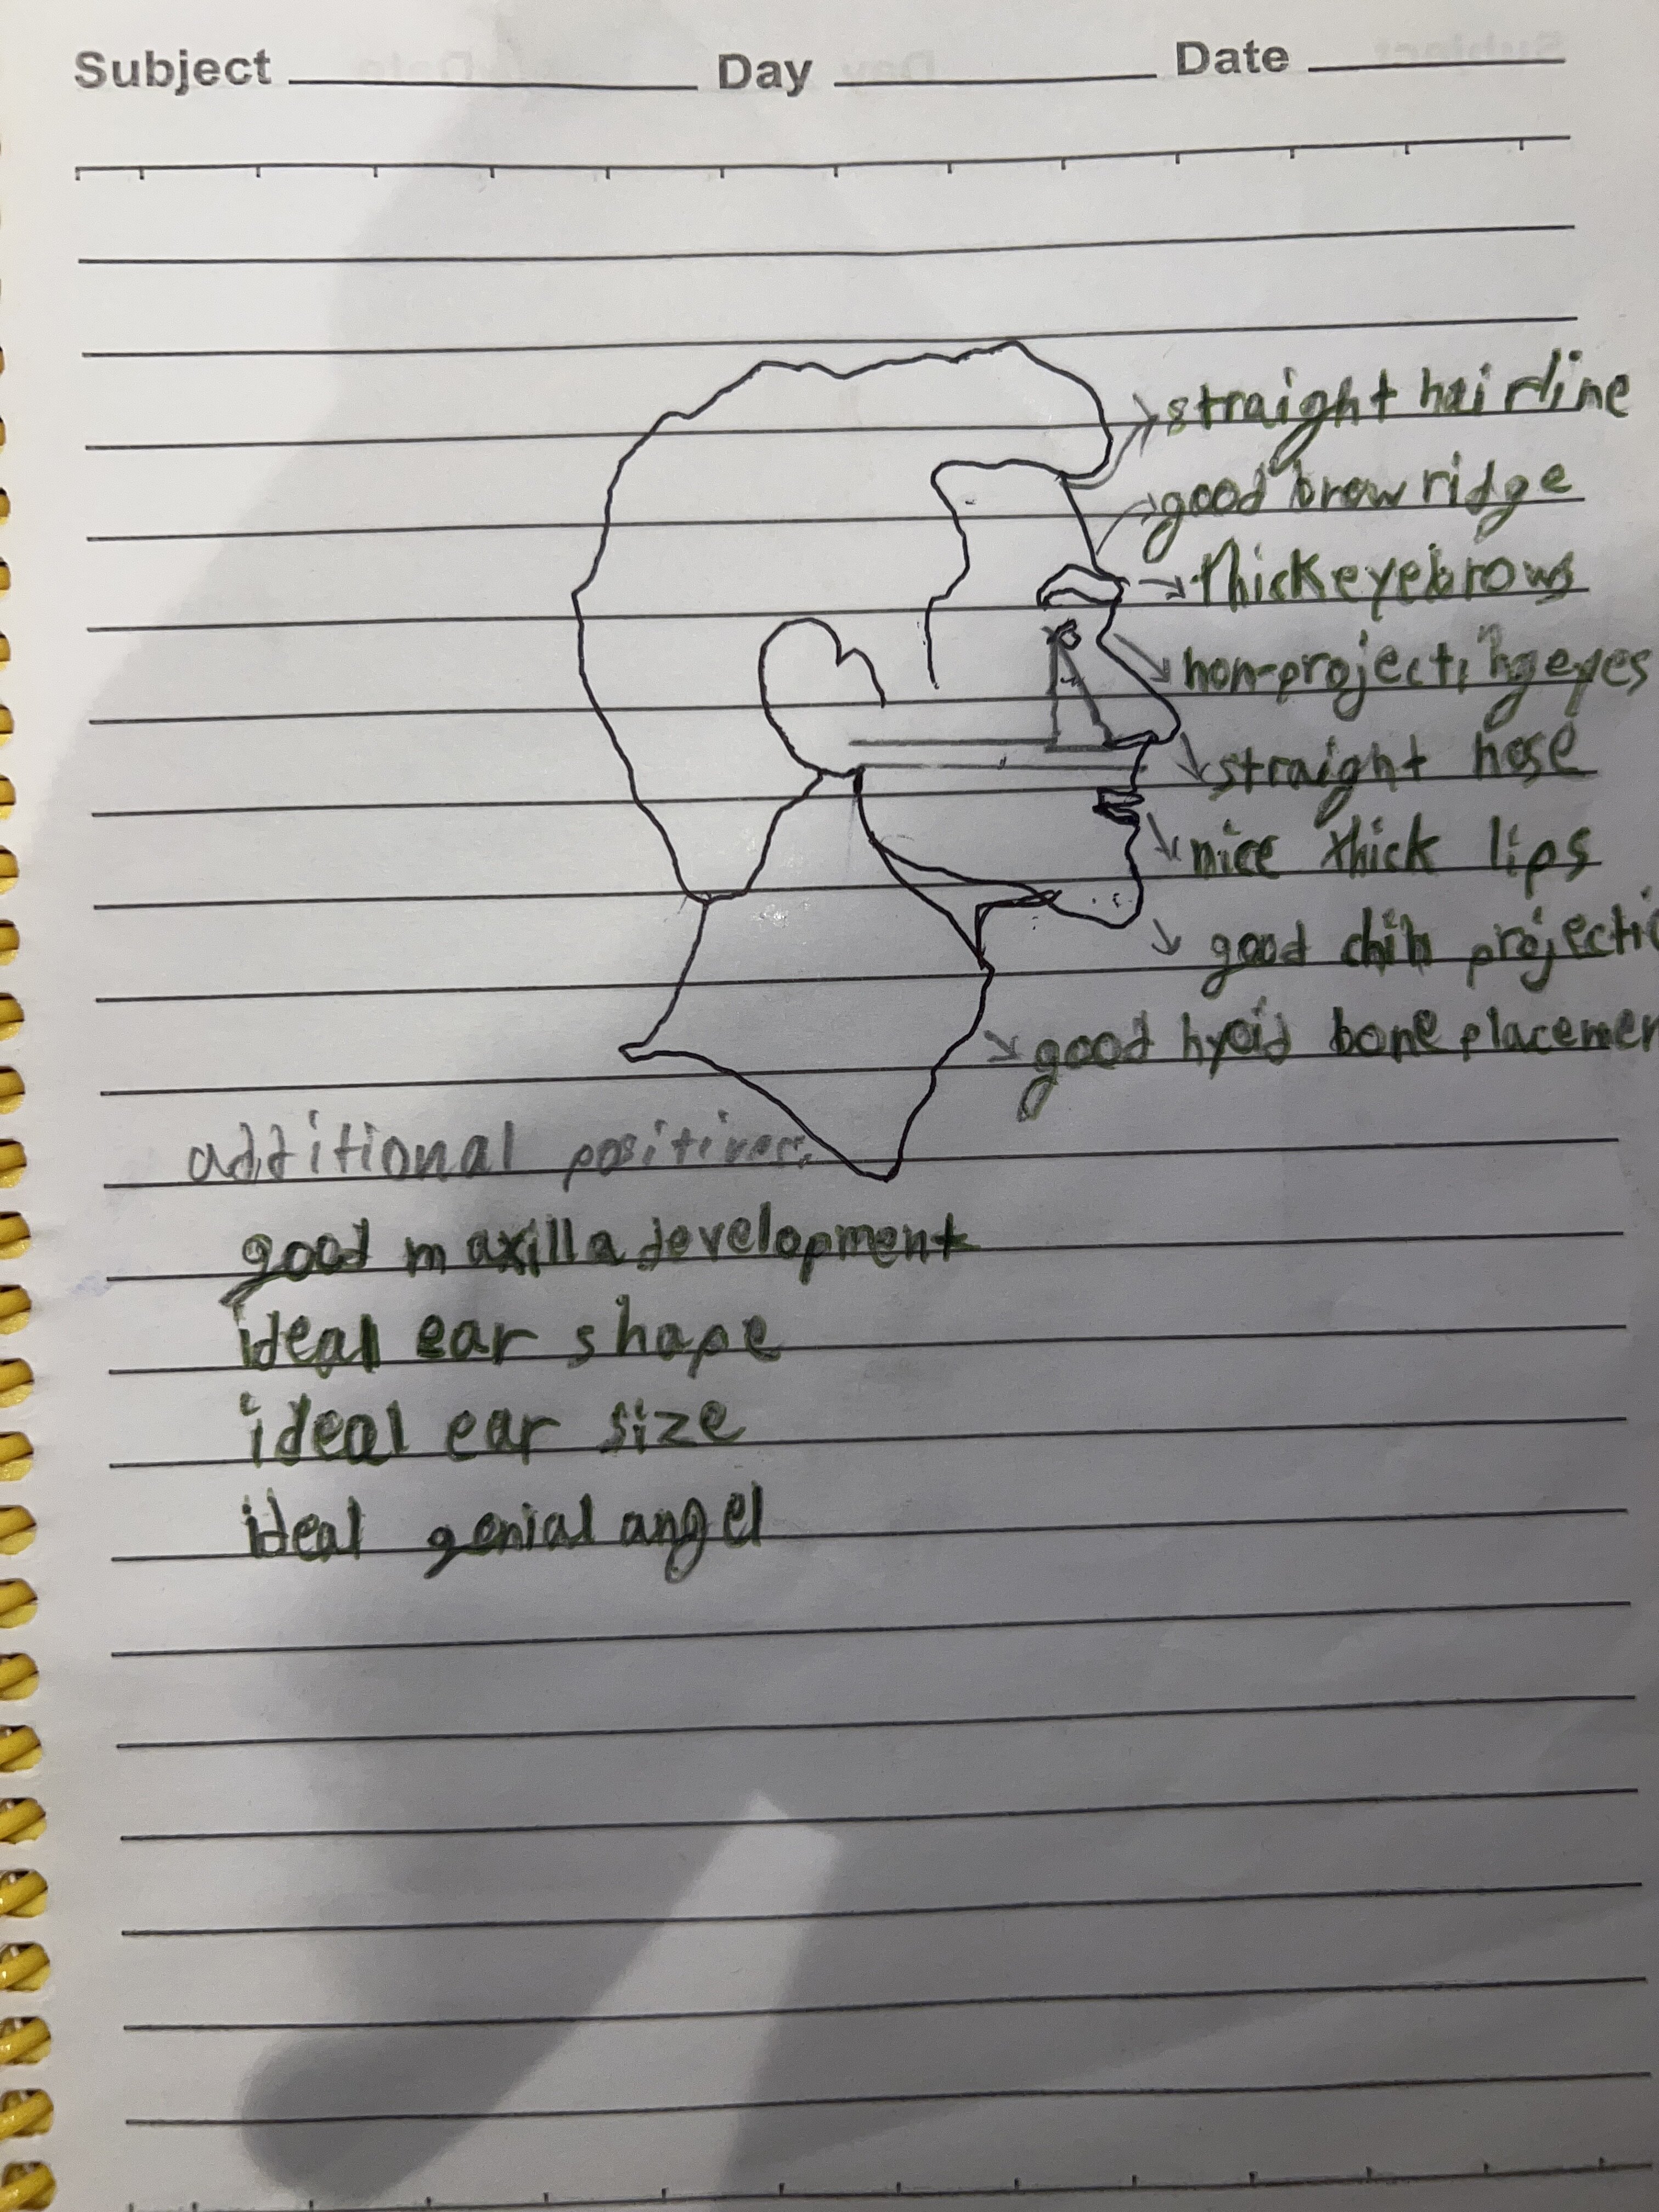 Subject Day Date
straight hairline
good brow ridge
thick eyebrows
non-projecting eyes
straight nose
nice thick lips
good chin projectio
good hyoid bone placemen
additional positives:
good maxilla development
ideal ear shape
ideal ear size
ideal genial angel